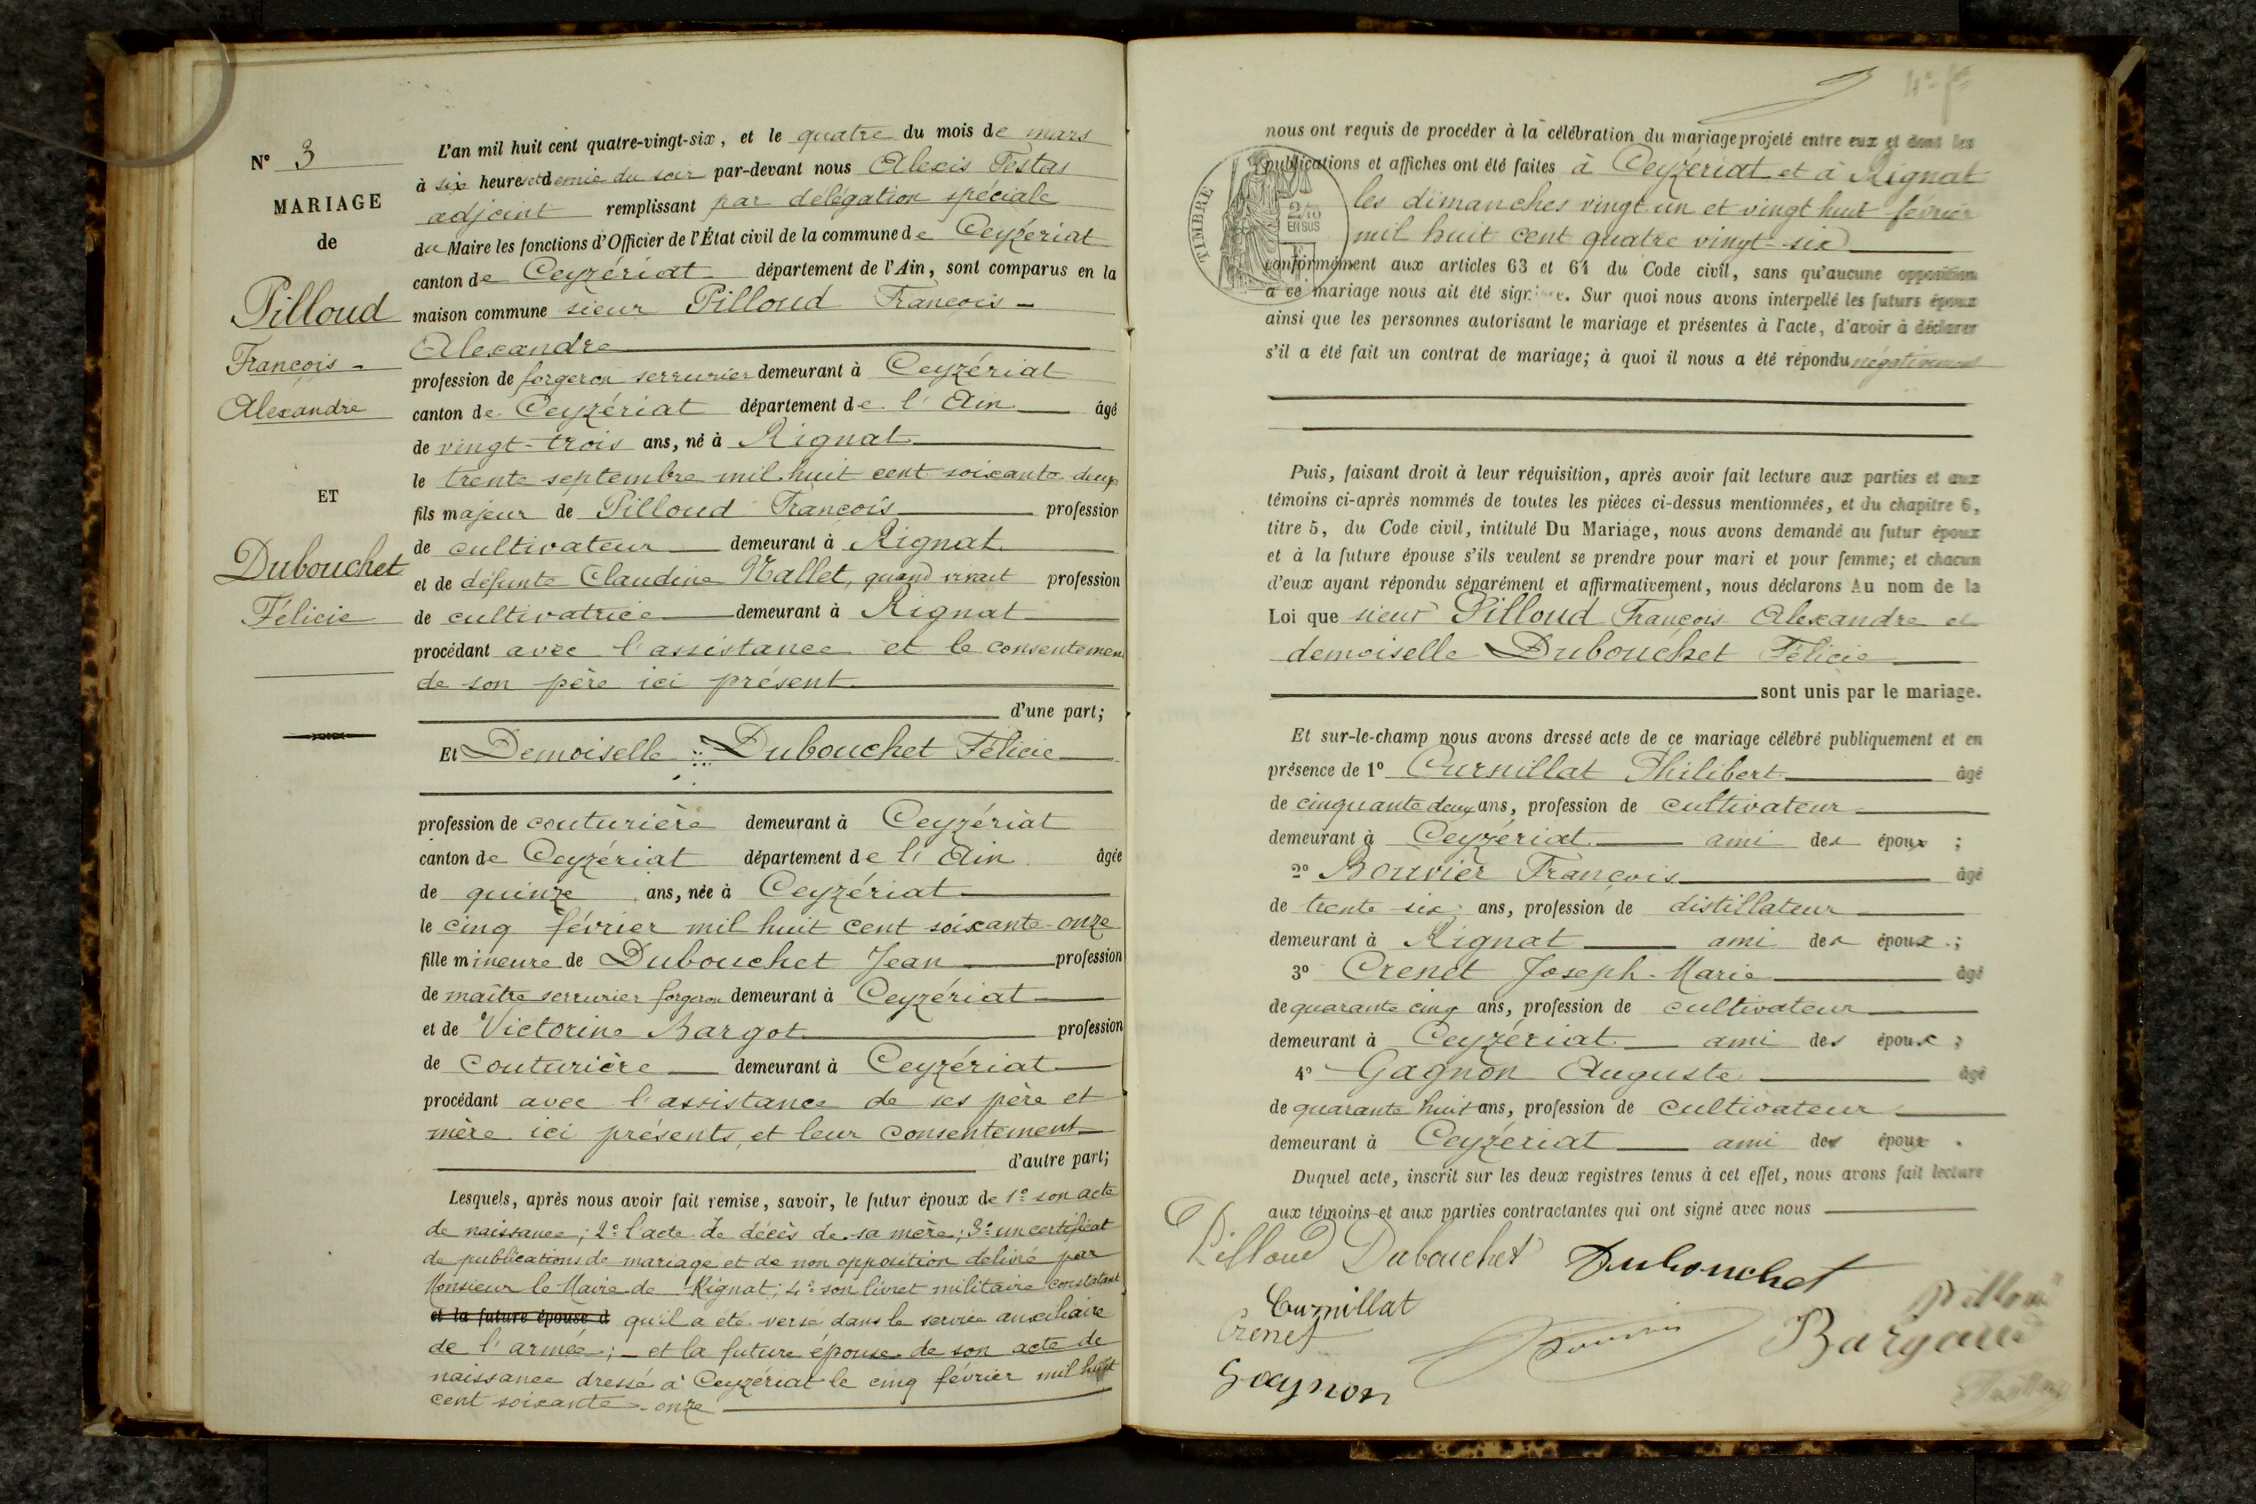 N° 3
MARIAGE
de
Pilloud
François -
Alexandre
ET
Dubouchet
Félicie
L'an mil huit cent quatre-vingt-six, et le quatre du mois de mars
à six heures et demie du soir par-devant nous Alexis Festas
adjoint remplissant par délégation spéciale
du Maire les fonctions d'Officier de l'État civil de la commune de Ceyzériat
canton de Ceyzériat département de l'Ain, sont comparus en la
maison commune sieur Pilloud François -
Alexandre
profession de forgeron serrurier demeurant à Ceyzériat
canton de Ceyzériat département de l'Ain âgé
de vingt-trois ans, né à Rignat
le trente septembre mil huit cent soixante deux
fils majeur de Pilloud François profession
de cultivateur demeurant à Rignat
et de défunte Claudine Mallet, quand vivait profession
de cultivatrice demeurant à Rignat
procédant avec l'assistance et le consentement
de son père ici présent
d'une part;
Et Demoiselle Dubouchet Félicie
profession de couturière demeurant à Ceyzériat
canton de Ceyzériat département de l'Ain âgée
de quinze ans, née à Ceyzériat
le cinq février mil huit cent soixante-onze
fille mineure de Dubouchet Jean profession
de maître serrurier forgeron demeurant à Ceyzériat
et de Victorine Bargot profession
de couturière demeurant à Ceyzériat
procédant avec l'assistance de ses père et
mère ici présents et leur consentement
d'autre part;
Lesquels, après nous avoir fait remise, savoir, le futur époux de 1° son acte
de naissance; 2° l'acte de décès de sa mère; 3° un certificat
de publications de mariage et de non opposition délivré par
Monsieur le Maire de Rignat; 4° son livret militaire constatant
et la future épouse d qu'il a été versé dans le service auxiliaire
de l'armée; - et la future épouse de son acte de
naissance dressé à Ceyzériat le cinq février mil huit
cent soixante-onze
nous ont requis de procéder à la célébration du mariage projeté entre eux et dont les
publications et affiches ont été faites à Ceyzériat et à Rignat
TIMBRE
2/10
EN SUS
les dimanches vingt un et vingt huit février
mil huit cent quatre vingt-six
conformément aux articles 63 et 64 du Code civil, sans qu'aucune opposition
à ce mariage nous ait été signifiée. Sur quoi nous avons interpellé les futurs époux
ainsi que les personnes autorisant le mariage et présentes à l'acte, d'avoir à déclarer
s'il a été fait un contrat de mariage; à quoi il nous a été répondu négativement
Puis, faisant droit à leur réquisition, après avoir fait lecture aux parties et aux
témoins ci-après nommés de toutes les pièces ci-dessus mentionnées, et du chapitre 6,
titre 5, du Code civil, intitulé Du Mariage, nous avons demandé au futur époux
et à la future épouse s'ils veulent se prendre pour mari et pour femme; et chacun
d'eux ayant répondu séparément et affirmativement, nous déclarons Au nom de la
Loi que sieur Pilloud François Alexandre et
demoiselle Dubouchet Félicie
sont unis par le mariage.
Et sur-le-champ nous avons dressé acte de ce mariage célébré publiquement et en
présence de 1° Curnillat Philibert âgé
de cinquante deux ans, profession de cultivateur
demeurant à Ceyzériat ami des époux ;
2° Bouvier François âgé
de trente six ans, profession de distillateur
demeurant à Rignat ami des époux ;
3° Crenet Joseph-Marie âgé
de quarante cinq ans, profession de cultivateur
demeurant à Ceyzériat ami des époux ;
4° Gagnon Auguste âgé
de quarante huit ans, profession de cultivateur
demeurant à Ceyzériat ami des époux .
Duquel acte, inscrit sur les deux registres tenus à cet effet, nous avons fait lecture
aux témoins et aux parties contractantes qui ont signé avec nous
Pilloud Dubouchet Dubouchet
Curnillat Pilloud
Crenet Bouvier
Gagnon